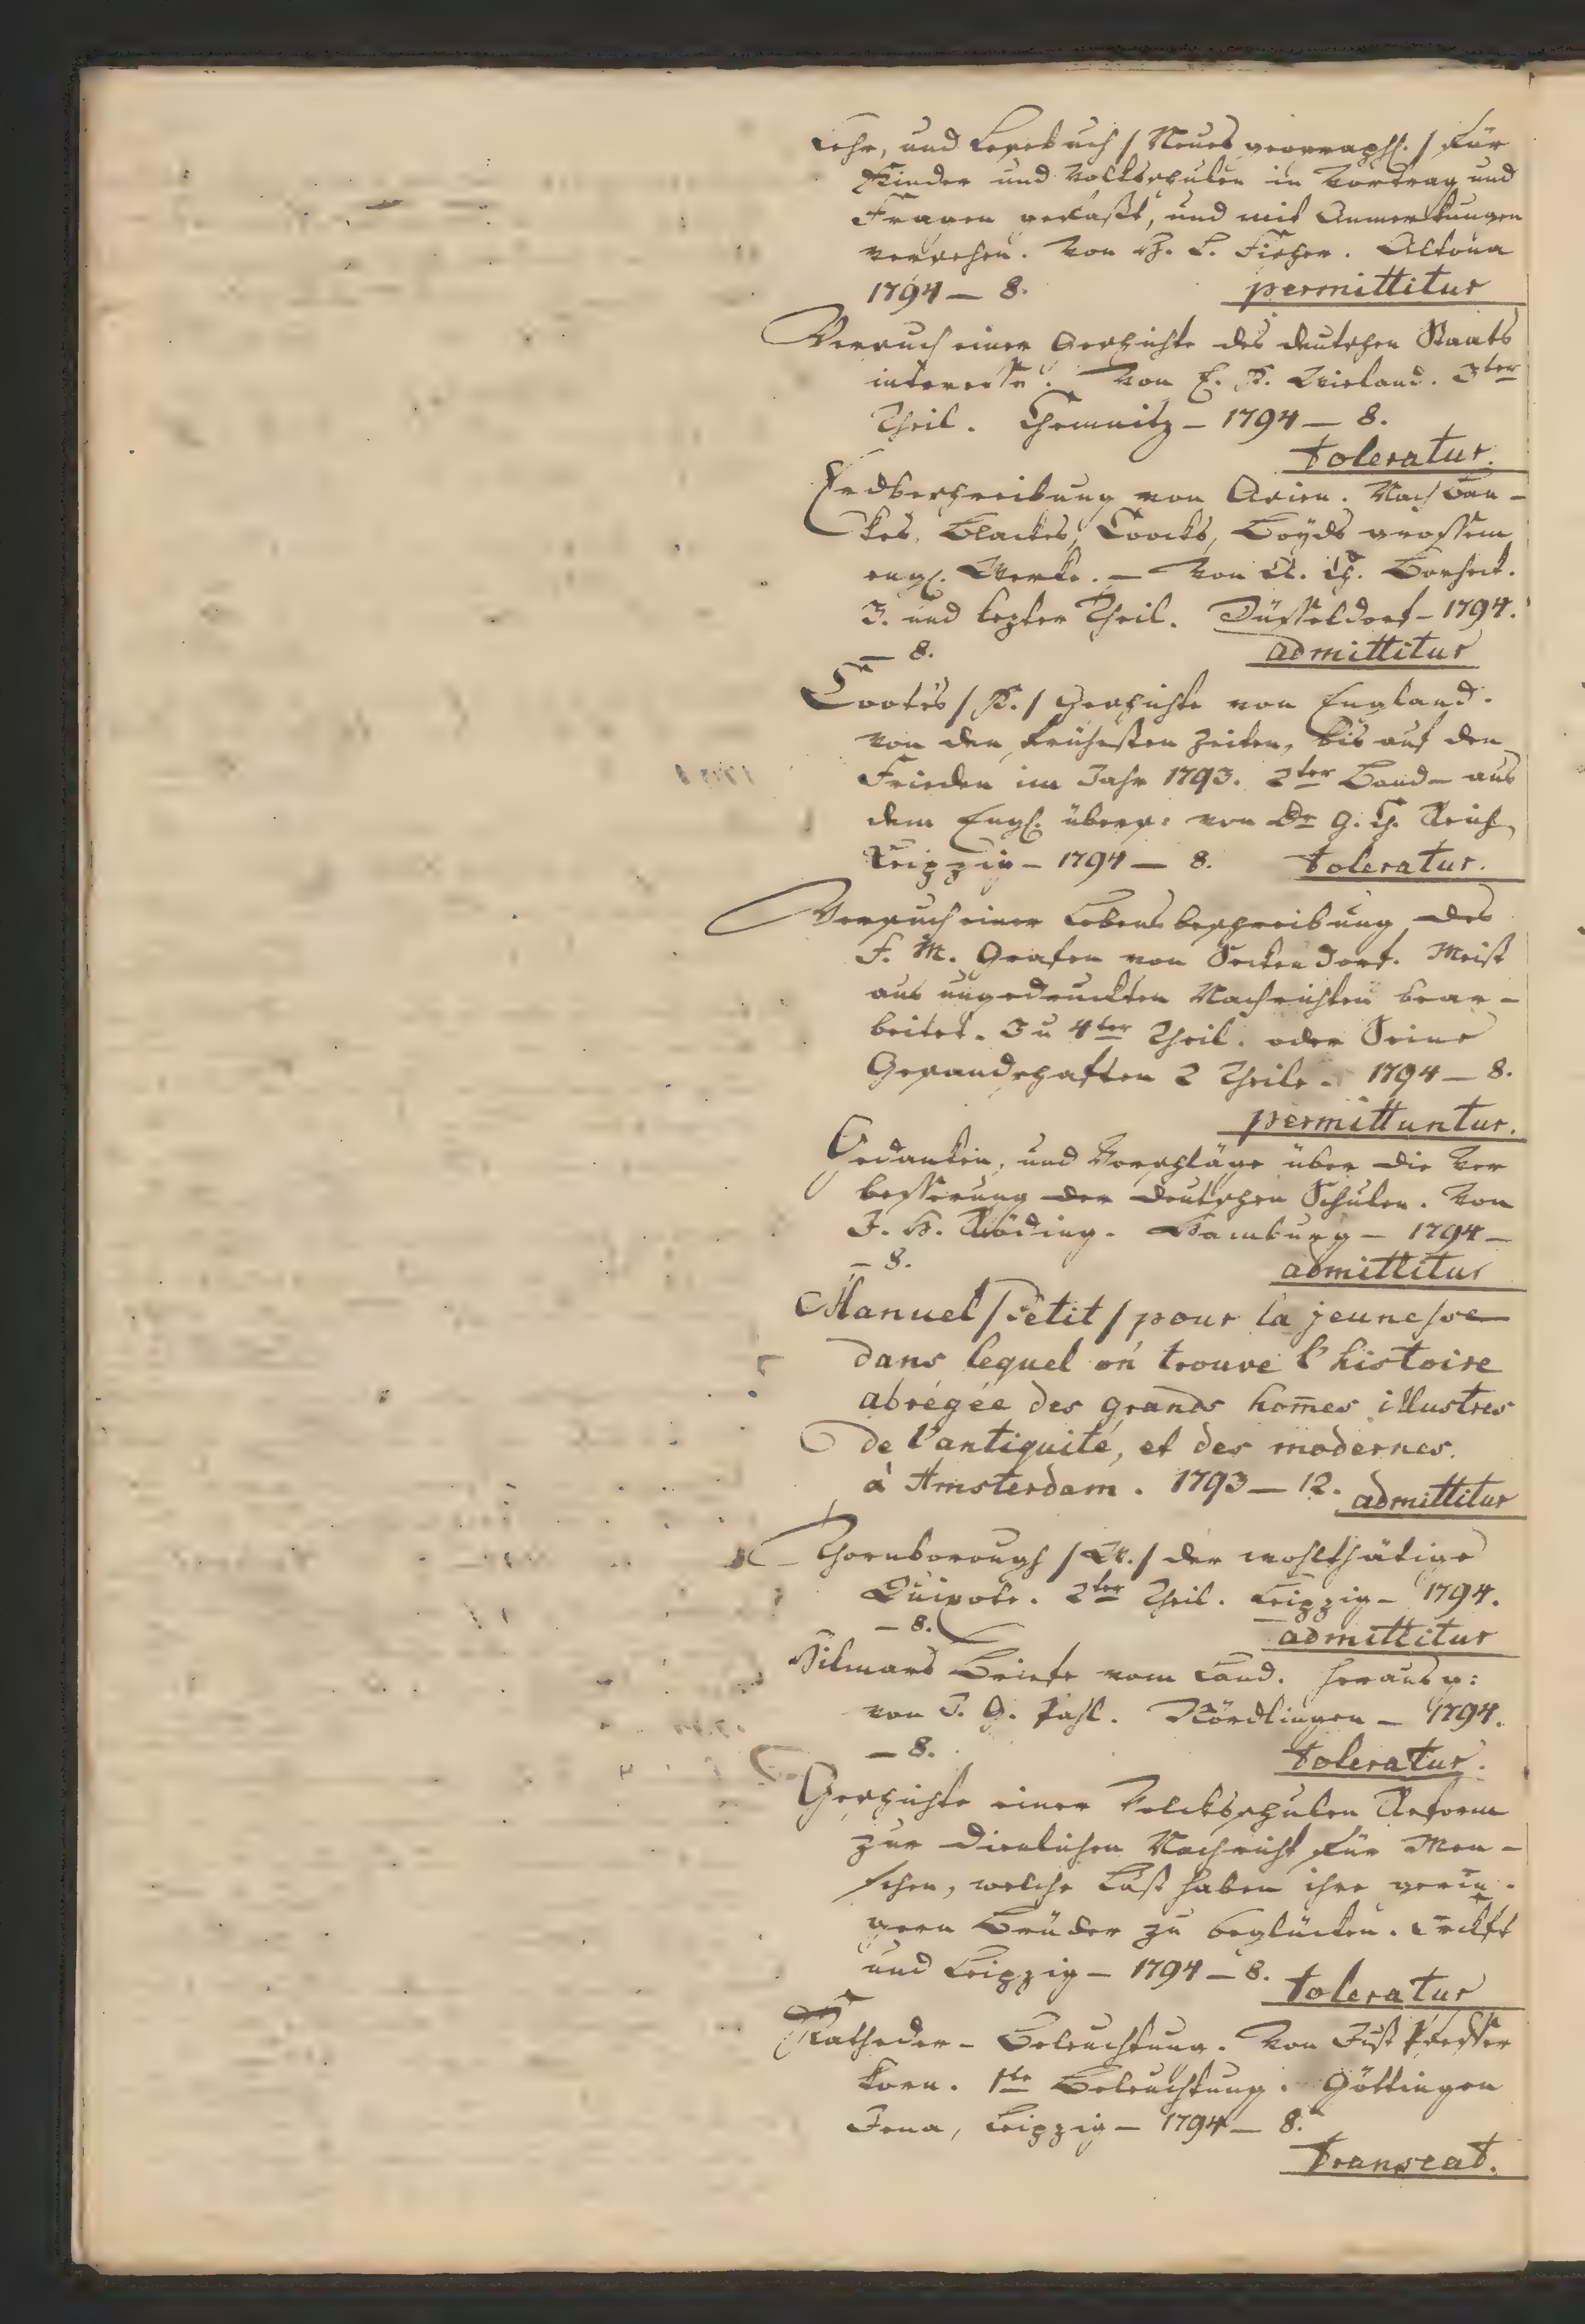 Lehr, und Lesebuch / Neues geographs. / für
Kinder und Volksschulen in Vortrag und
Fragen gefaßt, und mit Anmerkungen
versehen. Von H. L. Fischer. Altona
1794 — 8. permittitur
Versuch einer Geschichte des deutschen Staats
interesse. Von E. K. Wieland. 3ter
Theil. Chemnitz — 1794 — 8.
toleratur.
Erdbeschreibung von Asien. Nach Ban-
kes, Blackes, Coocks, Loÿds grossem
engl. Werke. — Von A. Ch. Borheck.
3. und lezter Theil. Düsseldorf — 1794.
— 8. admittitur
Cootes / K. / Geschichte von England.
von den frühesten Zeiten, bis auf den
Frieden im Jahr 1793. 2ter Band — aus
dem Engl. übers: von Dr G. Ch. Reich
Leipzig — 1794 — 8. toleratur.
Versuch einer Lebensbeschreibung des
F. M. Grafen von Seckendorf. Meist
aus ungedruckten Nachrichten bear-
beitet. 3 u 4ter Theil. oder Seine
Gesandschaften 2 Theile. 1794 — 8.
permittuntur.
Gedanken, und Vorschläge über die Ver
besserung der deutschen Schulen. Von
J. H. Röding. Hamburg — 1794 —
— 8. admittitur
Manuel / Petit / pour la jeunesse
dans lequel on trouve l'histoire
abrégée des grands hom̄es illustres
de l'antiquité, et des modernes.
à Amsterdam. 1793 — 12. admittitur
Thornborough / W. / der wohlthätige
Quixote. 2ter Theil. Leipzig — 1794.
— 8. admittitur
Hilmars Briefe vom Land. Herausg:
von J. G. Pahl. Nördlingen — 1794.
— 8. toleratur.
Geschichte einer Volcksschulen Reform
zur dienlichen Nachricht für Men-
schen, welche Lust haben ihre gerin-
gern Brüder zu beglücken.
und Leipzig — 1794 — 8. toleratur
Katheder-Beleuchtung. Von Just Pfeffer
korn. 1te Beleuchtung. Göttingen
Jena, Leipzig — 1794 — 8.
transeat.